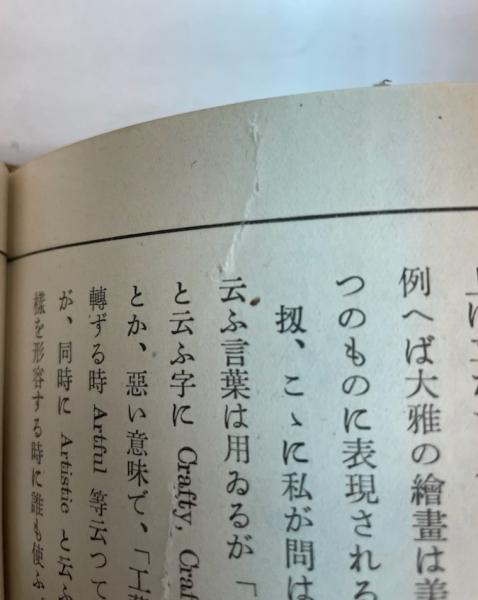 例へば大雅の繪畫は美
つのものに表現される
扨、こゝに私が問は
云ふ言葉は用ゐるが「
と云ふ字に Crafty, Craf
とか、惡い意味で、「工藝
轉ずる時 Artful 等云つて
が、同時に Artistic と云ふ
樣を形容する時に誰も使ふ